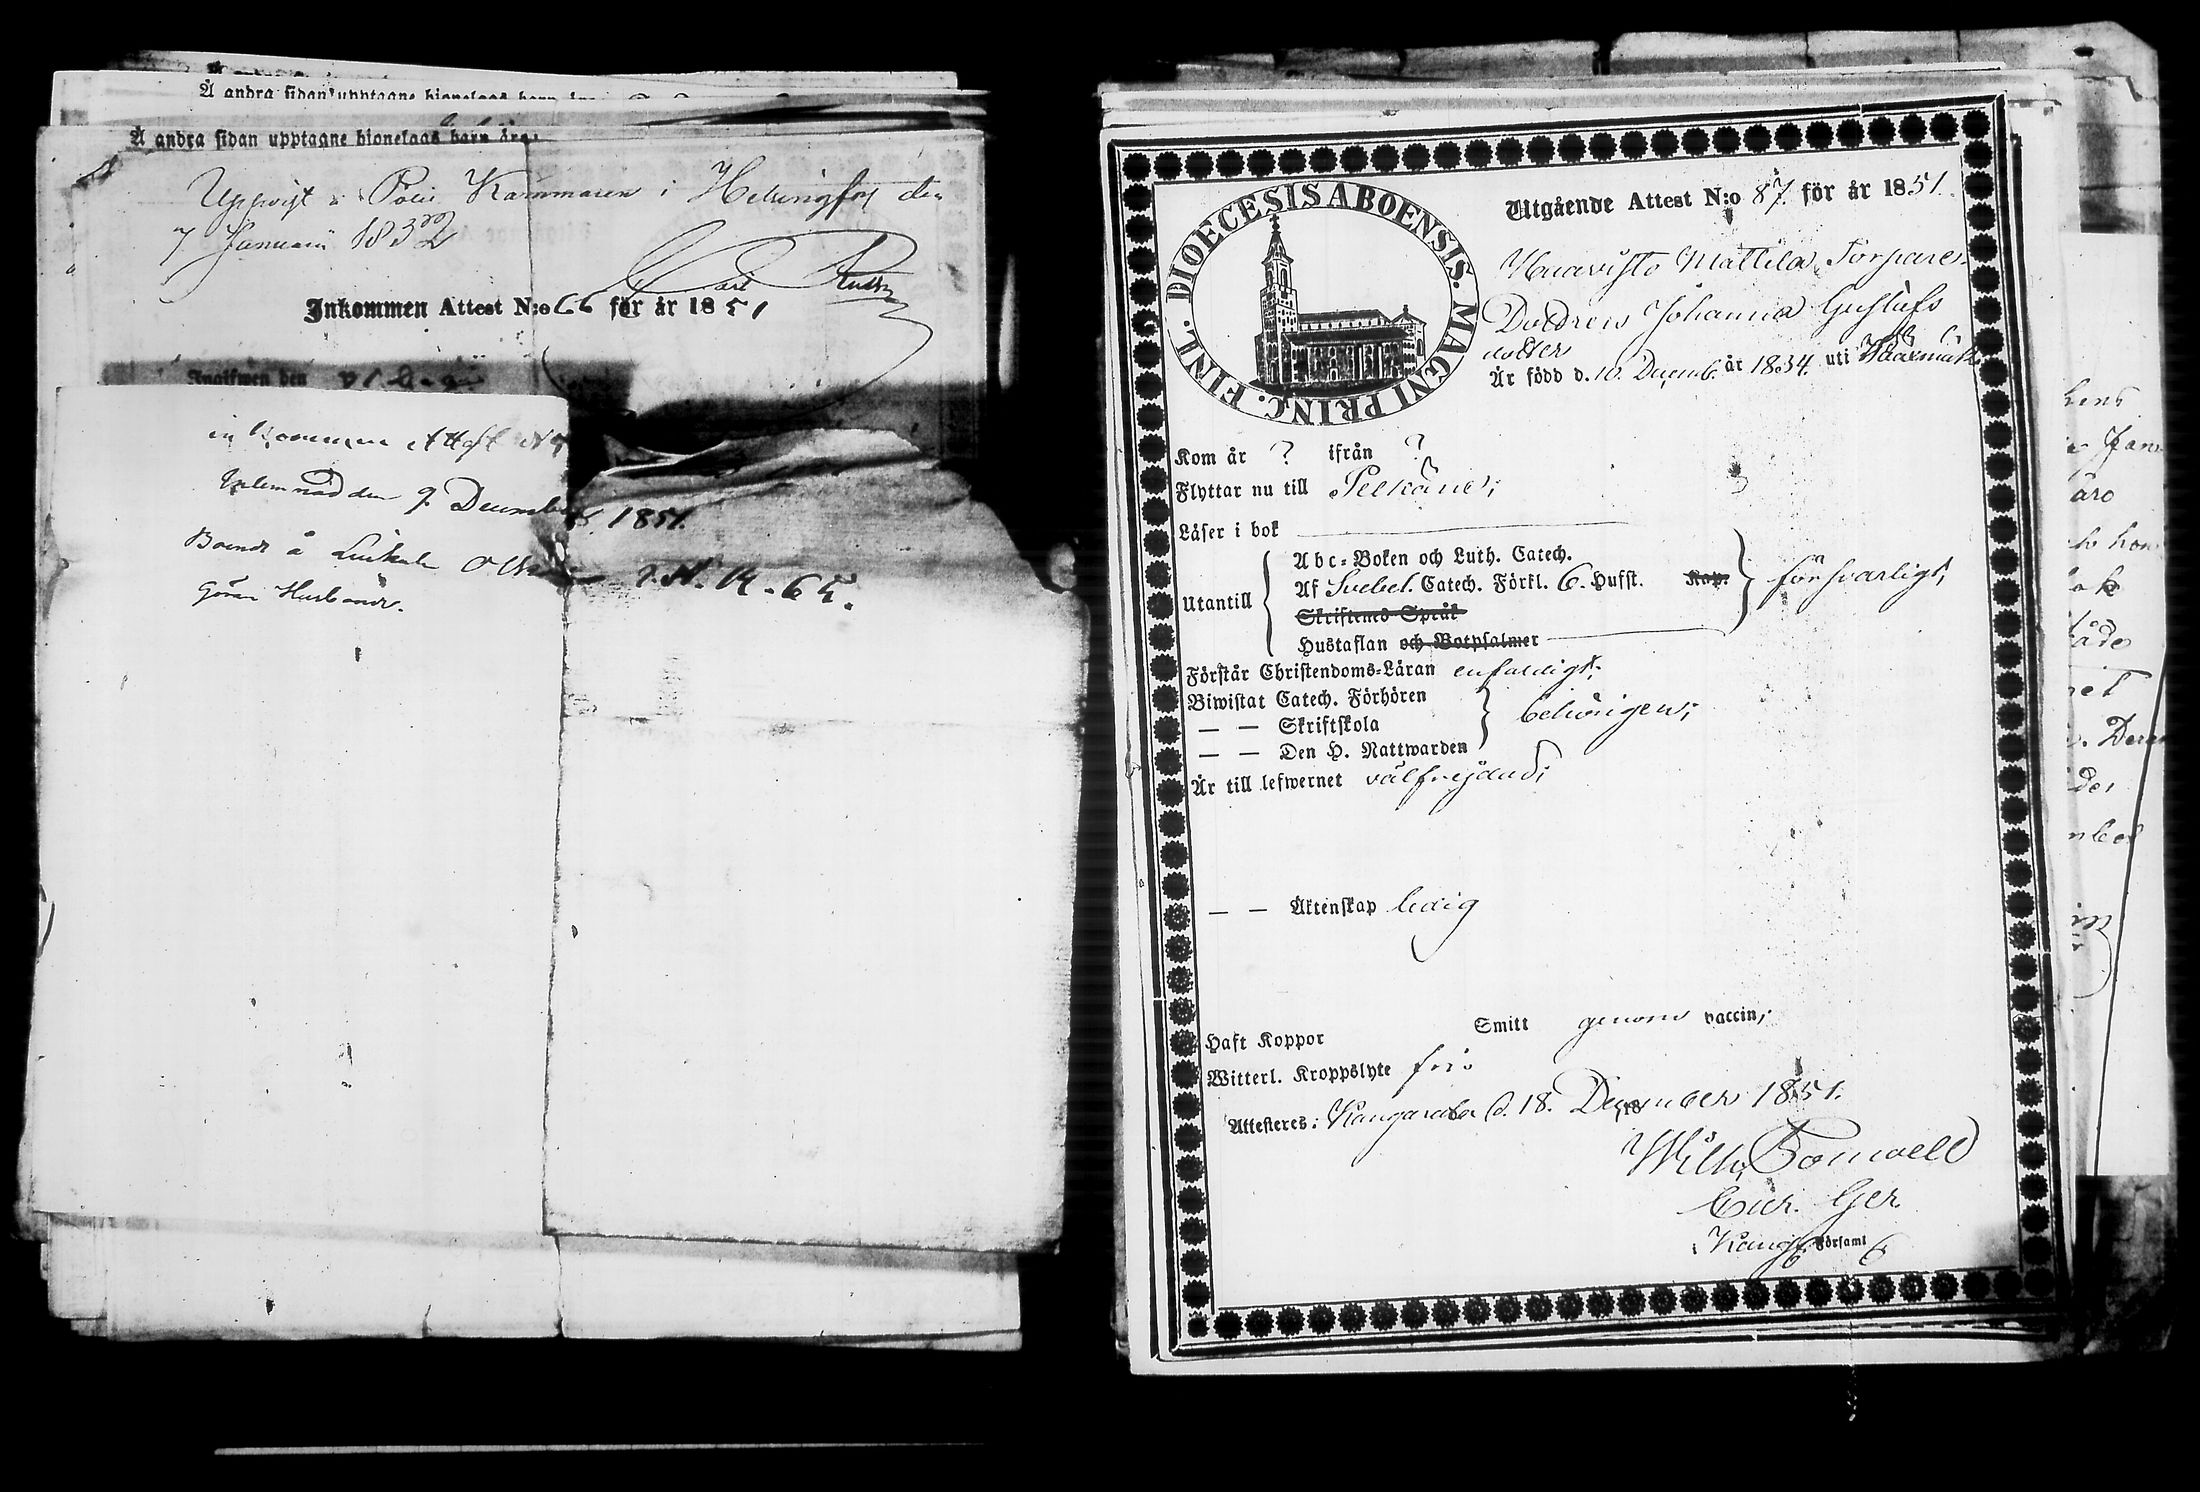 Å andra sidan upptagne hionelaas barn äro:
Å andra sidan upptagne hionelaas barn äro:
Uppvist i Polis Kammaren i Helsingfors den
7 Januarii 1852
Carl
Inkommen Attest N:o 66 för år 1851
Ingifwen den
in kommen Attest No
inlemnad den 9 December 1851.
Boende å
Göran Husbonde.
DIOECESIS ABOENSIS. MAGNI PRINC. FINL.
Utgående Attest N:o 87 för år 1851.
Haavisto Mattila Torpare-
Dottren Johanna Gustafs
dotter
Är född d. 10. Decemb. år 1834. uti
Kom år ? ifrån ?
Flyttar nu till Pelkäne;
Läser i bok
Utantill
Abc-Boken och Luth. Catech.
Af Svebel. Catech. Förkl. 6. Hufst. Kap.
Skriftenes Språk
Hustaflan och Botpsalmer
försvarligt;
Förstår Christendoms-Läran enfaldigt;
Biwistat Catech. Förhören
— — Skriftskola
— — Den H. Nattwarden
behörigen;
Är till lefwernet välfrejdad;
— — Äktenskap ledig
Haft Koppor Smitt genom vaccin;
Witterl. Kroppslyte fri.
Attesteres: Kangasala d. 18. December 1851.
Wilh.
Cur. Ger.
i Kang. Församl